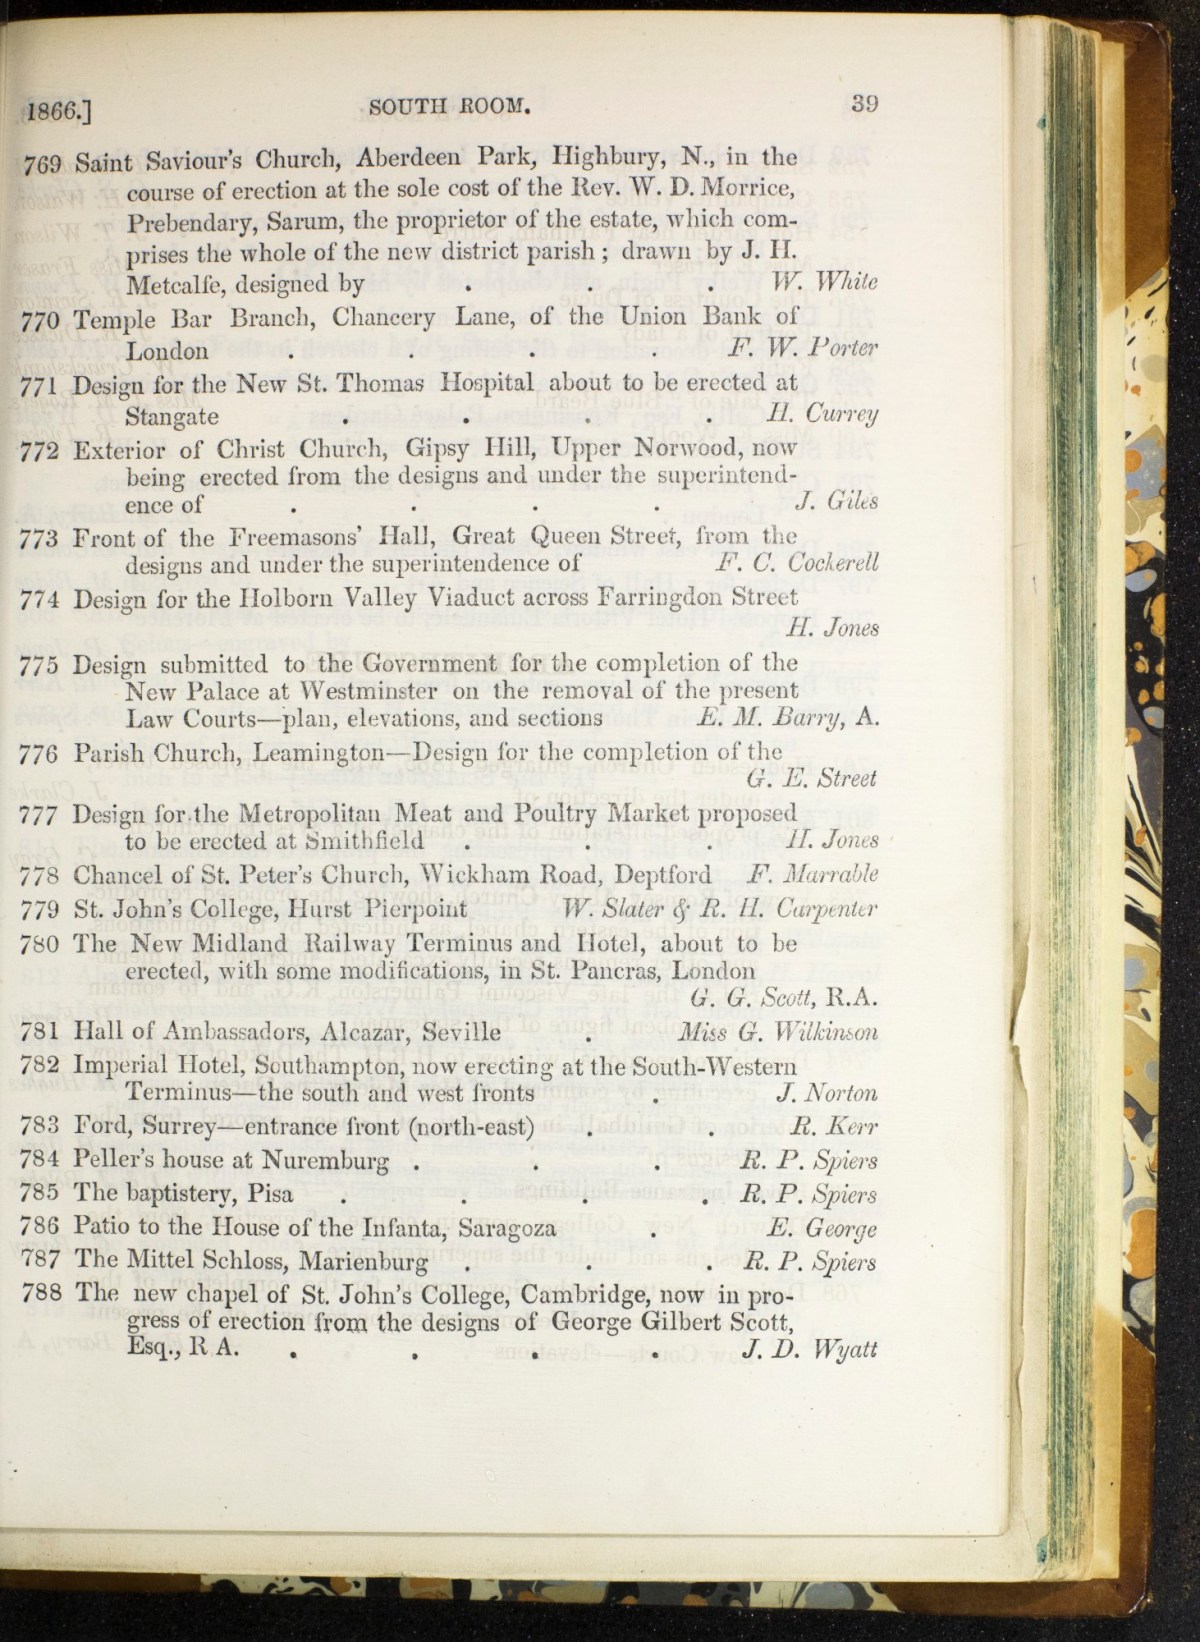 1866.] SOUTH ROOM. 39
769 Saint Saviour's Church, Aberdeen Park, Highbury, N., in the
course of erection at the sole cost of the Rev. W. D. Morrice,
Prebendary, Sarum, the proprietor of the estate, which com-
prises the whole of the new district parish; drawn by J. H.
Metcalfe, designed by . . . W. White
770 Temple Bar Branch, Chancery Lane, of the Union Bank of
London . . . . F. W. Porter
771 Design for the New St. Thomas Hospital about to be erected at
Stangate . . . . H. Currey
772 Exterior of Christ Church, Gipsy Hill, Upper Norwood, now
being erected from the designs and under the superintend-
ence of . . . . J. Giles
773 Front of the Freemasons' Hall, Great Queen Street, from the
designs and under the superintendence of F. C. Cockerell
774 Design for the Holborn Valley Viaduct across Farringdon Street
H. Jones
775 Design submitted to the Government for the completion of the
New Palace at Westminster on the removal of the present
Law Courts—plan, elevations, and sections E. M. Barry, A.
776 Parish Church, Leamington—Design for the completion of the
G. E. Street
777 Design for the Metropolitan Meat and Poultry Market proposed
to be erected at Smithfield . . . H. Jones
778 Chancel of St. Peter's Church, Wickham Road, Deptford F. Marrable
779 St. John's College, Hurst Pierpoint W. Slater & R. H. Carpenter
780 The New Midland Railway Terminus and Hotel, about to be
erected, with some modifications, in St. Pancras, London
G. G. Scott, R.A.
781 Hall of Ambassadors, Alcazar, Seville . Miss G. Wilkinson
782 Imperial Hotel, Southampton, now erecting at the South-Western
Terminus—the south and west fronts . J. Norton
783 Ford, Surrey—entrance front (north-east) . . R. Kerr
784 Peller's house at Nuremburg . . . R. P. Spiers
785 The baptistery, Pisa . . . . R. P. Spiers
786 Patio to the House of the Infanta, Saragoza . E. George
787 The Mittel Schloss, Marienburg . . . R. P. Spiers
788 The new chapel of St. John's College, Cambridge, now in pro-
gress of erection from the designs of George Gilbert Scott,
Esq., R A. . . . . J. D. Wyatt